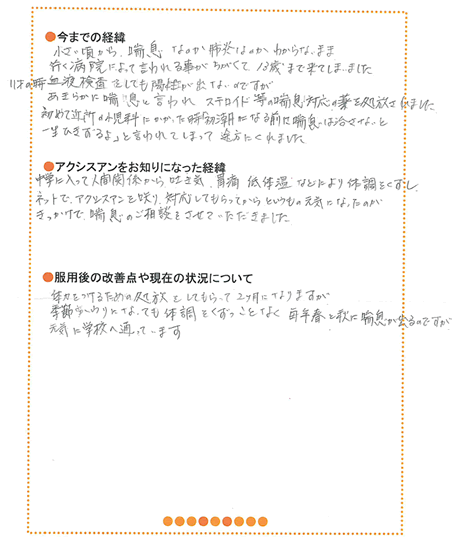 ●今までの経緯
小さい頃から、喘息なのか肺炎なのかわからないまま
行く病院によって言われる事がちがくて 13歳まで来てしまいました
11才の時血液検査をしても陽性が出ないのですが
あきらかに喘息と言われ ステロイド等の喘息対応の薬を処放されました
初めて近所の小児科にかかった時「初潮になる前に喘息は治させないと
一生ひきずるよ」と言われてしまって 途方にくれました
●アクシスアンをお知りになった経緯
中学に入って人間関係から 吐き気、胃痛 低体温 などにより体調をくずし、
ネットで、アクシスアンを知り、対応してもらってからというもの元気になったのが
きっかけで、喘息のご相談をさせていただきました
●服用後の改善点や現在の状況について
体力をつけるための処放をしてもらって 2ヶ月になりますが
季節かわりになっても体調をくずすことなく 毎年春と秋に喘息が出るのですが
元気に学校へ通っています